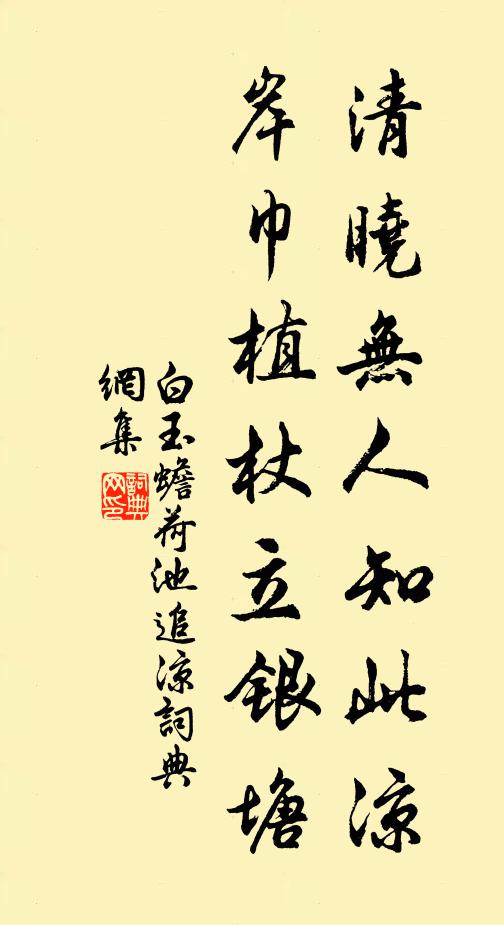 清曉無人知此涼
岸巾植杖立銀塘
白玉蟾荷池追涼詞典
網集
詞典
网印